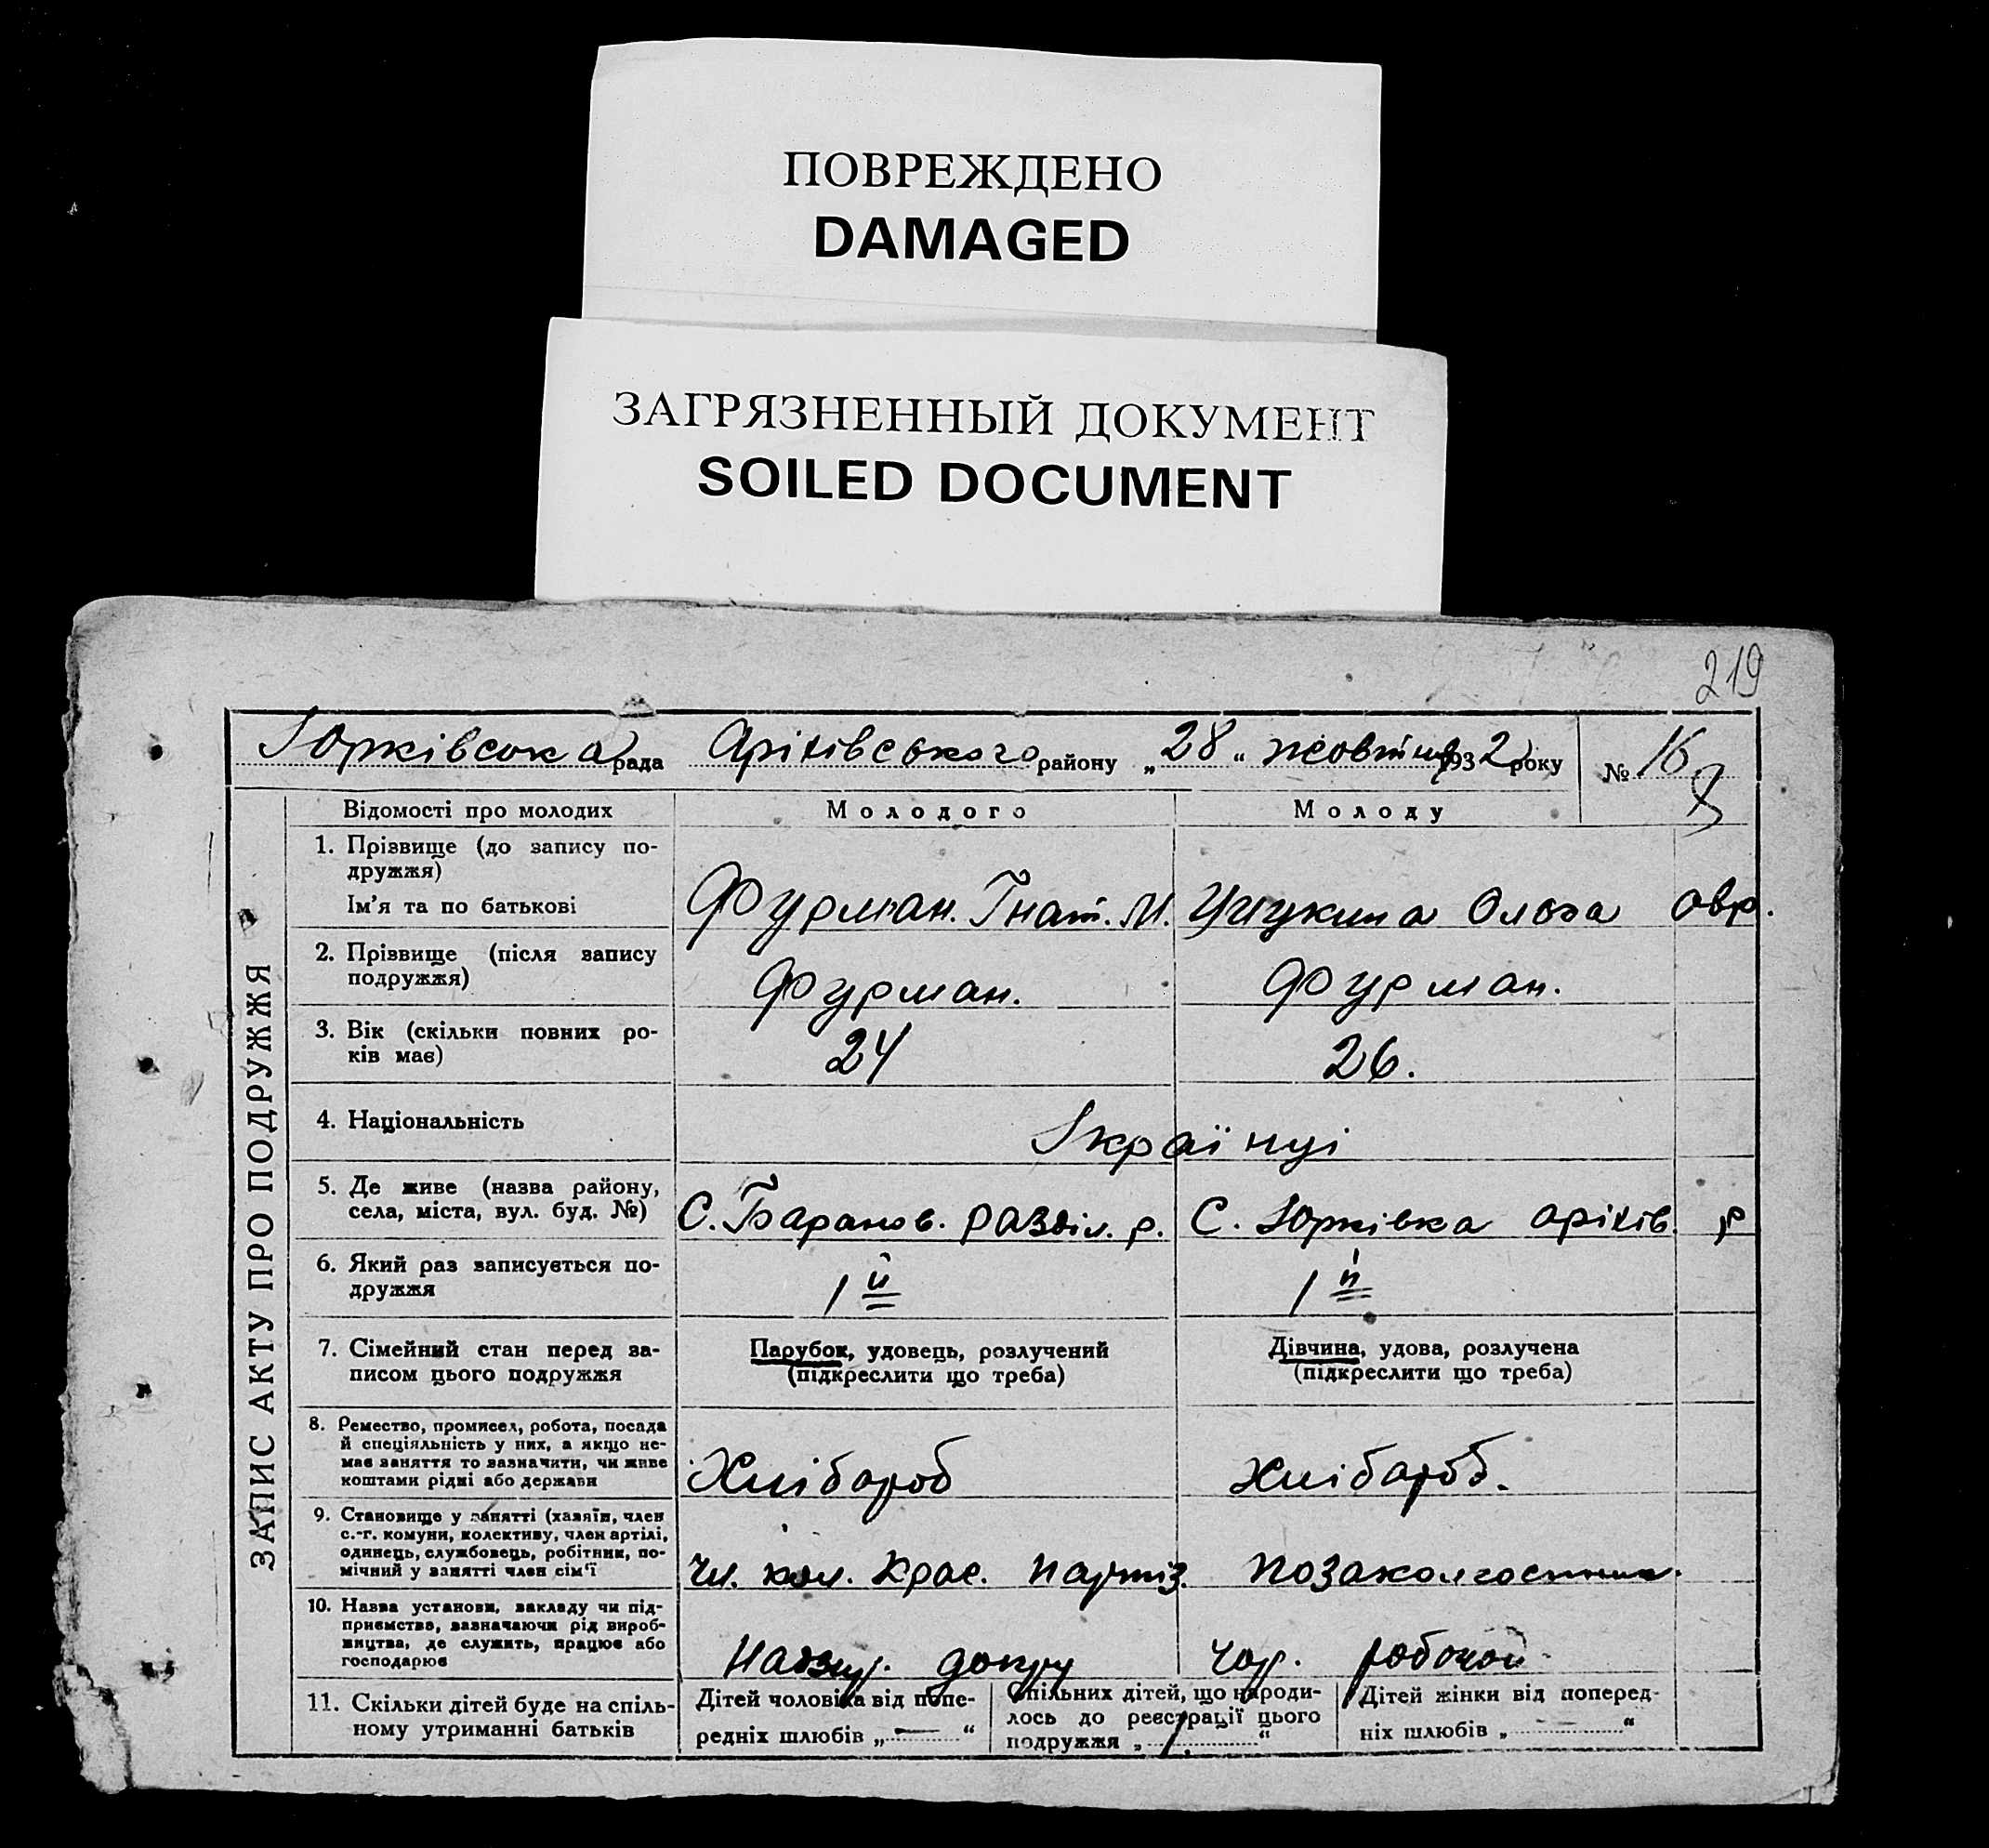 ПОВРЕЖДЕНО
DAMAGED
ЗАГРЯЗНЕННЫЙ ДОКУМЕНТ
SOILED DOCUMENT
219
Юрківська рада Оріхівського району „28“ жовтня 1932 року № 16
ЗАПИС АКТУ ПРО ПОДРУЖЖЯ
Відомості про молодих Молодого Молоду
1. Прізвище (до запису по-
дружжя)
Ім'я та по батькові Фурман. Гнат. М. Ольга
2. Прізвище (після запису
подружжя) Фурман. Фурман.
3. Вік (скільки повних ро-
ків має) 24 26.
4. Національність Українці
5. Де живе (назва району,
села, міста, вул. буд. №) С. Баранов. розділ. р. С. Юрківка оріхів. р
6. Який раз записується по-
дружжя 1й 1й
7. Сімейний стан перед за-
писом цього подружжя
Парубок, удовець, розлучений
(підкреслити що треба)
Дівчина, удова, розлучена
(підкреслити що треба)
8. Ремество, промисел, робота, посада
й спеціяльність у них, а якщо не-
має заняття то зазначити, чи живе
коштами рідні або держави
Хлібороб Хлібороб.
9. Становище у занятті (хазяїн, член
с.-г. комуни, колективу, член артілі,
одинець, службовець, робітник, по-
мічний у занятті член сім'ї
Чл. кол. Крас. партиз. позаколгоспник.
10. Назва установи, закладу чи під-
приємства, зазначаючи рід вироб-
ництва, де служить, працює або
господарює
чор. робочой
11. Скільки дітей буде на спіль-
ному утриманні батьків
Дітей чоловіка від попе-
редніх шлюбів „—“
Спільних дітей, що народи-
лось до реєстрації цього
подружжя „1.“
Дітей жінки від поперед-
ніх шлюбів „—“